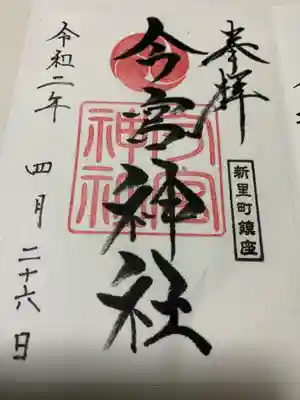 奉拝
新里町鎮座
今宮神社
今宮神社
令和二年
四月二十六日